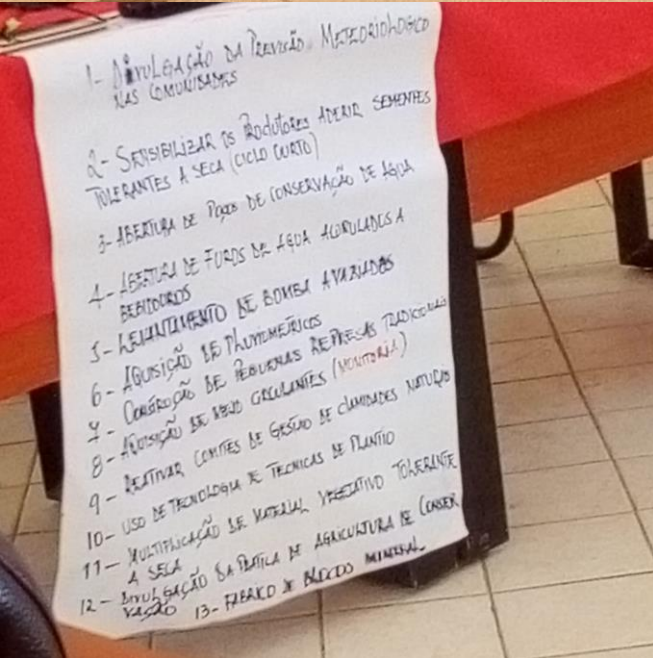 1- DIVULGAÇÃO DA PREVISÃO METEORIOLOGICO
NAS COMUNIDADES
2- SENSIBILIZAR OS PRODUTORES ADERIR SEMENTES
TOLERANTES A SECA (CICLO CURTO)
3- ABERTURA DE POÇOS DE CONSERVAÇÃO DE AGUA
4- ABERTURA DE FUROS DE AGUA ACOPULADOS A
BEBIDOUROS
5- LEVANTAMENTO DE BOMBA AVARIADAS
6- AQUISIÇÃO DE PLUVIOMETRICOS
7- CONSTRUÇÃO DE PEQUENAS REPRESAS TRADICIONAIS
8- AQUISIÇÃO DE MEIO CIRCULANTES (MONITORIA)
9- REATIVAR COMITES DE GESTÃO DE CLAMIDADES NATURAIS
10- USO DE TECNOLOGIA E TECNICAS DE PLANTIO
11- MULTIPLICAÇÃO DE MATERIAL VEGETATIVO TOLERANTE
A SECA
12- DIVULGAÇÃO DA PRATICA DE AGRICULTURA DE CONSER
VAÇÃO 13- FABRICO DE BLOCOS MINERAL